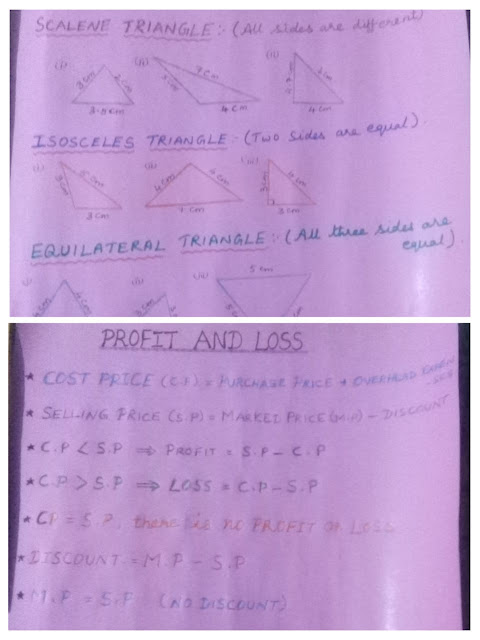 SCALENE TRIANGLE:- (All sides are different)
(i) (ii) (iii)
3 cm 2 cm 7 cm
3.5 cm 4 cm 4 cm
ISOSCELES TRIANGLE:- (Two sides are equal).
(i) (ii) (iii)
3 cm 5 cm 4 cm 4 cm 3 cm
3 cm 7 cm 3 cm
EQUILATERAL TRIANGLE:- (All three sides are
equal).
(i) (ii) (iii) 5 cm
4 cm
PROFIT AND LOSS
* COST PRICE (C.P) = PURCHASE PRICE + OVERHEAD EXPEN
-SES
* SELLING PRICE (S.P) = MARKET PRICE (M.P) - DISCOUNT
* C.P < S.P ⇒ PROFIT = S.P - C.P
* C.P > S.P ⇒ LOSS = C.P - S.P
* CP = S.P, there is no PROFIT or LOSS
* DISCOUNT = M.P - S.P
* M.P = S.P (NO DISCOUNT)